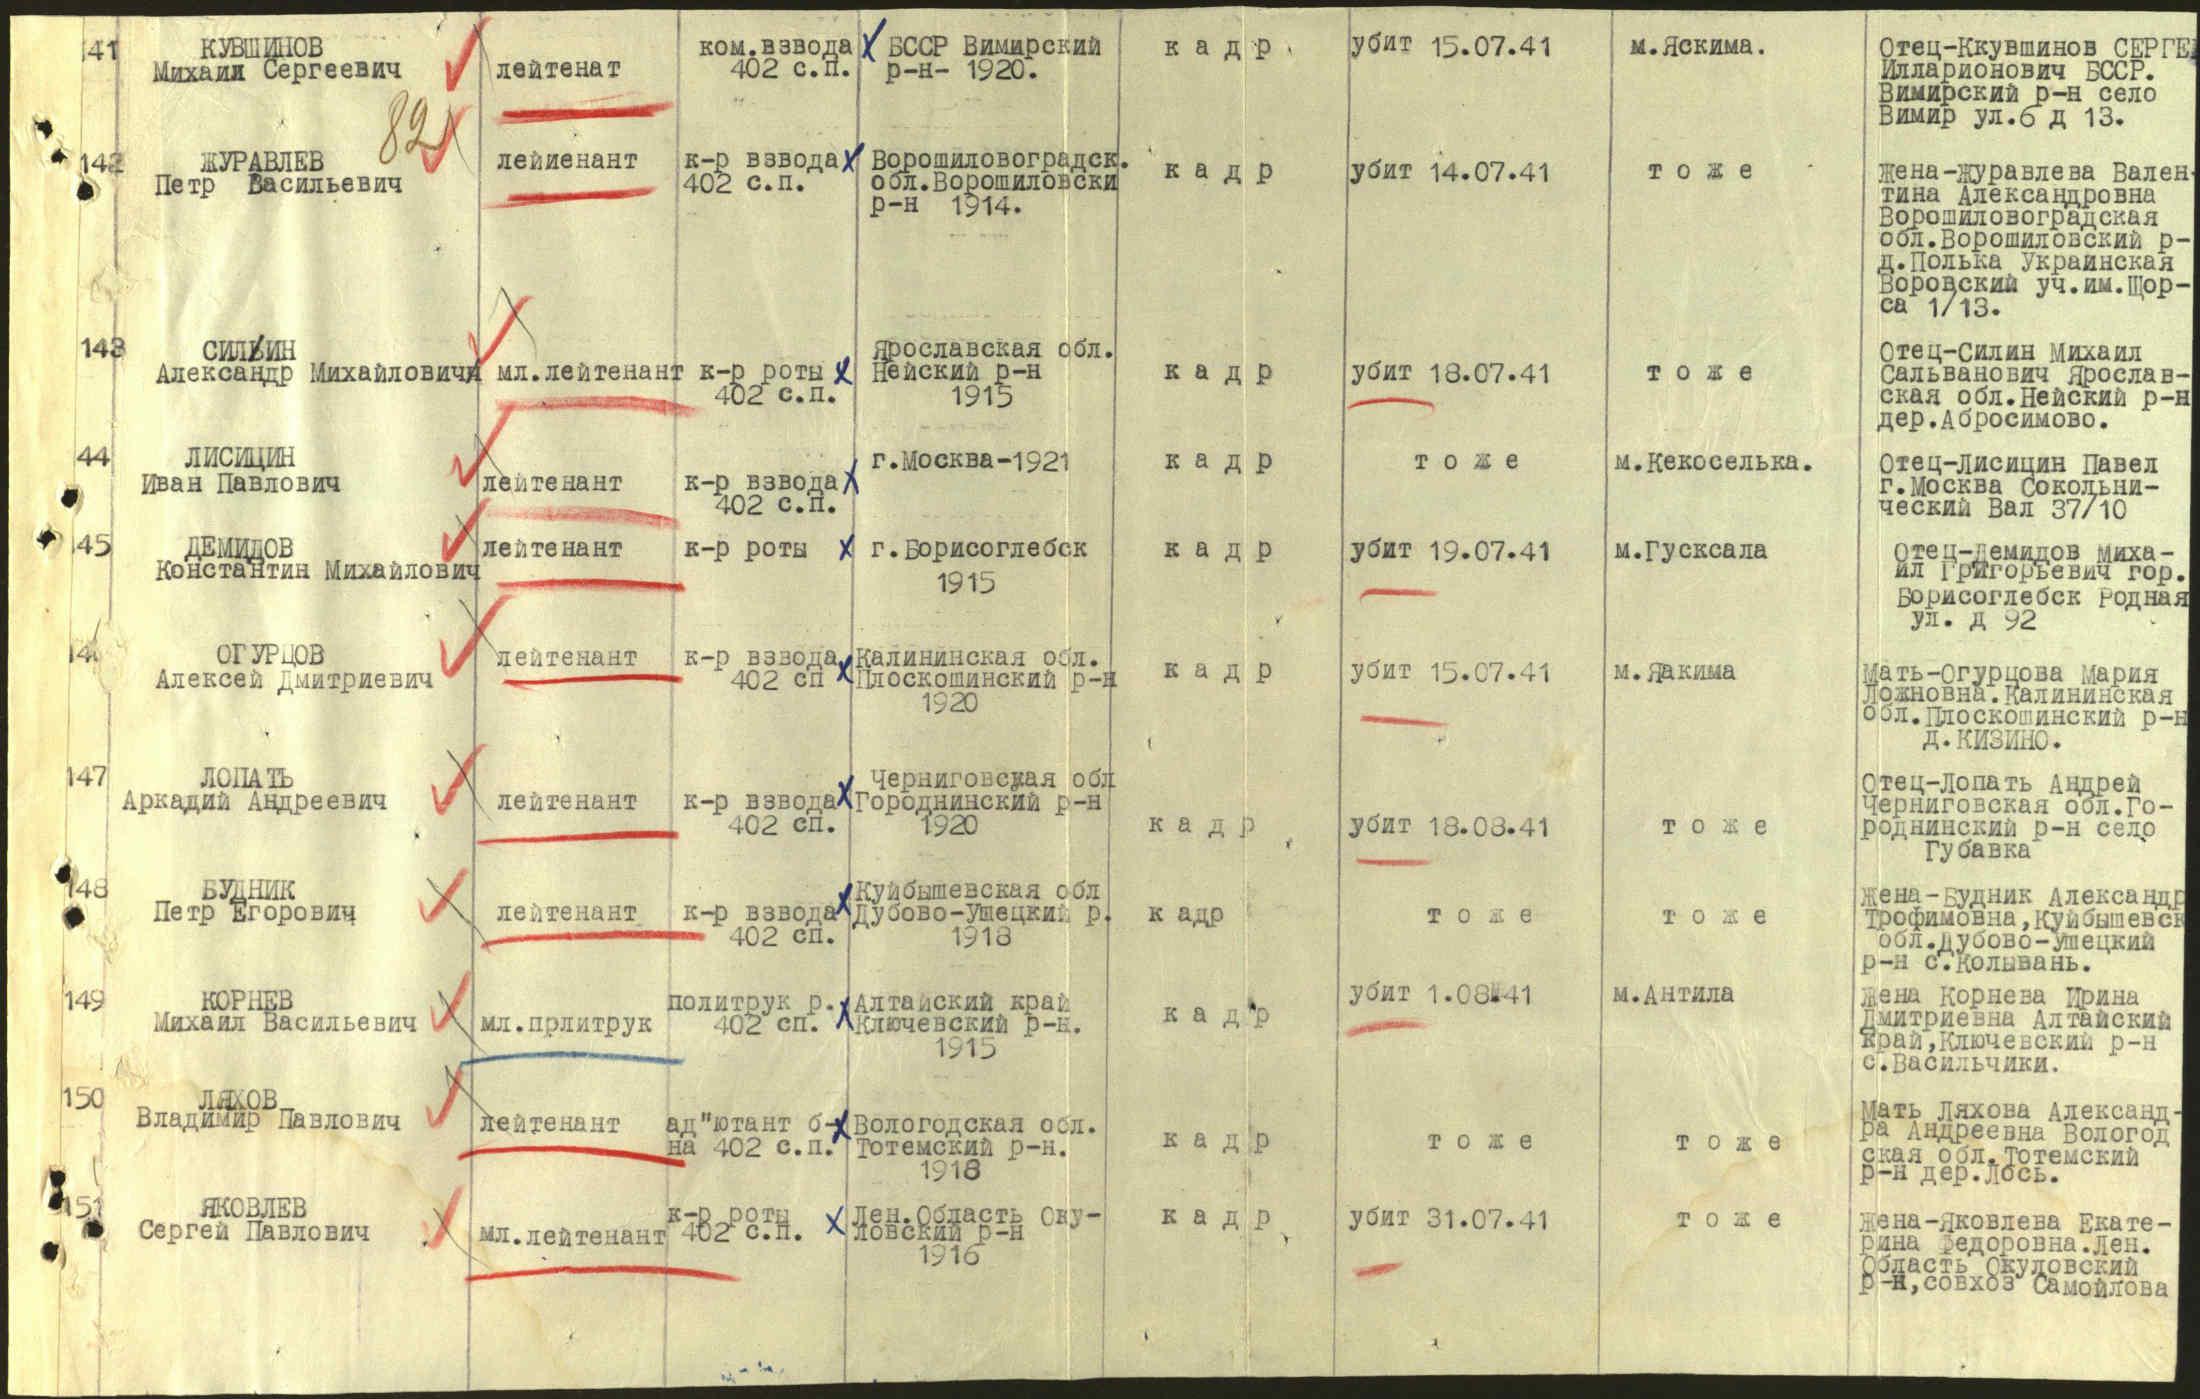 41 КУВШИНОВ
Михаил Сергеевич
лейтенат
ком.взвода
402 с.п.
БССР Вимирский
р-н- 1920.
кадр
убит 15.07.41
м.Яскима.
Отец-Ккувшинов СЕРГЕ
Илларионович БССР.
Вимирский р-н село
Вимир ул.6 д 13.
82
142 ЖУРАВЛЕВ
Петр Васильевич
лейиенант
к-р взвода
402 с.п.
Ворошиловоградск.
обл.Ворошиловски
р-н 1914.
кадр
убит 14.07.41
тоже
Жена-Журавлева Вален-
тина Александровна
Ворошиловоградская
обл.Ворошиловский р-
д.Полька Украинская
Воровский уч.им.Щор-
са 1/13.
143 СИЛЬИН
Александр Михайлович
мл.лейтенант
к-р роты
402 с.п.
Ярославская обл.
Нейский р-н
1915
кадр
убит 18.07.41
тоже
Отец-Силин Михаил
Сальванович Ярослав-
ская обл.Нейский р-н
дер.Абросимово.
44 ЛИСИЦИН
Иван Павлович
лейтенант
к-р взвода
402 с.п.
г.Москва-1921
кадр
тоже
м.Кекоселька.
Отец-Лисицин Павел
г.Москва Сокольни-
ческий Вал 37/10
45 ДЕМИДОВ
Константин Михайлович
лейтенант
к-р роты
г.Борисоглебск
1915
кадр
убит 19.07.41
м.Гусксала
Отец-Демидов Миха-
ил Григорьевич гор.
Борисоглебск Родная
ул. д 92
146 ОГУРЦОВ
Алексей Дмитриевич
лейтенант
к-р взвода
402 сп
Калининская обл.
Плоскошинский р-н
1920
кадр
убит 15.07.41
м.Яакима
Мать-Огурцова Мария
Ложновна.Калининская
обл.Плоскошинский р-н
д.КИЗИНО.
147 ЛОПАТЬ
Аркадий Андреевич
лейтенант
к-р взвода
402 сп.
Черниговская обл
Городнинский р-н
1920
кадр
убит 18.08.41
тоже
Отец-Лопать Андрей
Черниговская обл.Го-
роднинский р-н село
Губавка
148 БУДНИК
Петр Егорович
лейтенант
к-р взвода
402 сп.
Куйбышевская обл
Дубово-Ушецкий р.
1918
кадр
тоже
тоже
Жена-Будник Александр
Трофимовна,Куйбышевск
обл.Дубово-Ушецкий
р-н с.Колывань.
149 КОРНЕВ
Михаил Васильевич
мл.прлитрук
политрук р.
402 сп.
Алтайский край
Ключевский р-н.
1915
кадр
убит 1.08.41
м.Антила
Жена Корнева Ирина
Дмитриевна Алтайский
край,Ключевский р-н
с.Васильчики.
150 ЛЯХОВ
Владимир Павлович
лейтенант
ад"ютант б-
на 402 с.п.
Вологодская обл.
Тотемский р-н.
1918
кадр
тоже
тоже
Мать Ляхова Александ-
ра Андреевна Вологод
ская обл.Тотемский
р-н дер.Лось.
151 ЯКОВЛЕВ
Сергей Павлович
мл.лейтенант
к-р роты
402 с.п.
Лен.Область Оку-
ловский р-н
1916
кадр
убит 31.07.41
тоже
Жена-Яковлева Екате-
рина Федоровна.Лен.
Область Окуловский
р-н,совхоз Самойлова